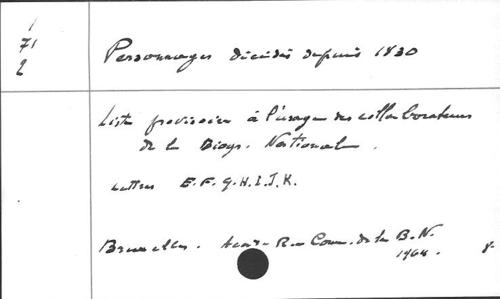 1
71
2
Personnages décédés depuis 1830
Liste provisoire à l'usage des collaborateurs
de la Biogr. Nationale.
Lettres E.F.G.H.I.J.K.
Bruxelles. Com. de la B.N.
1964. 8°